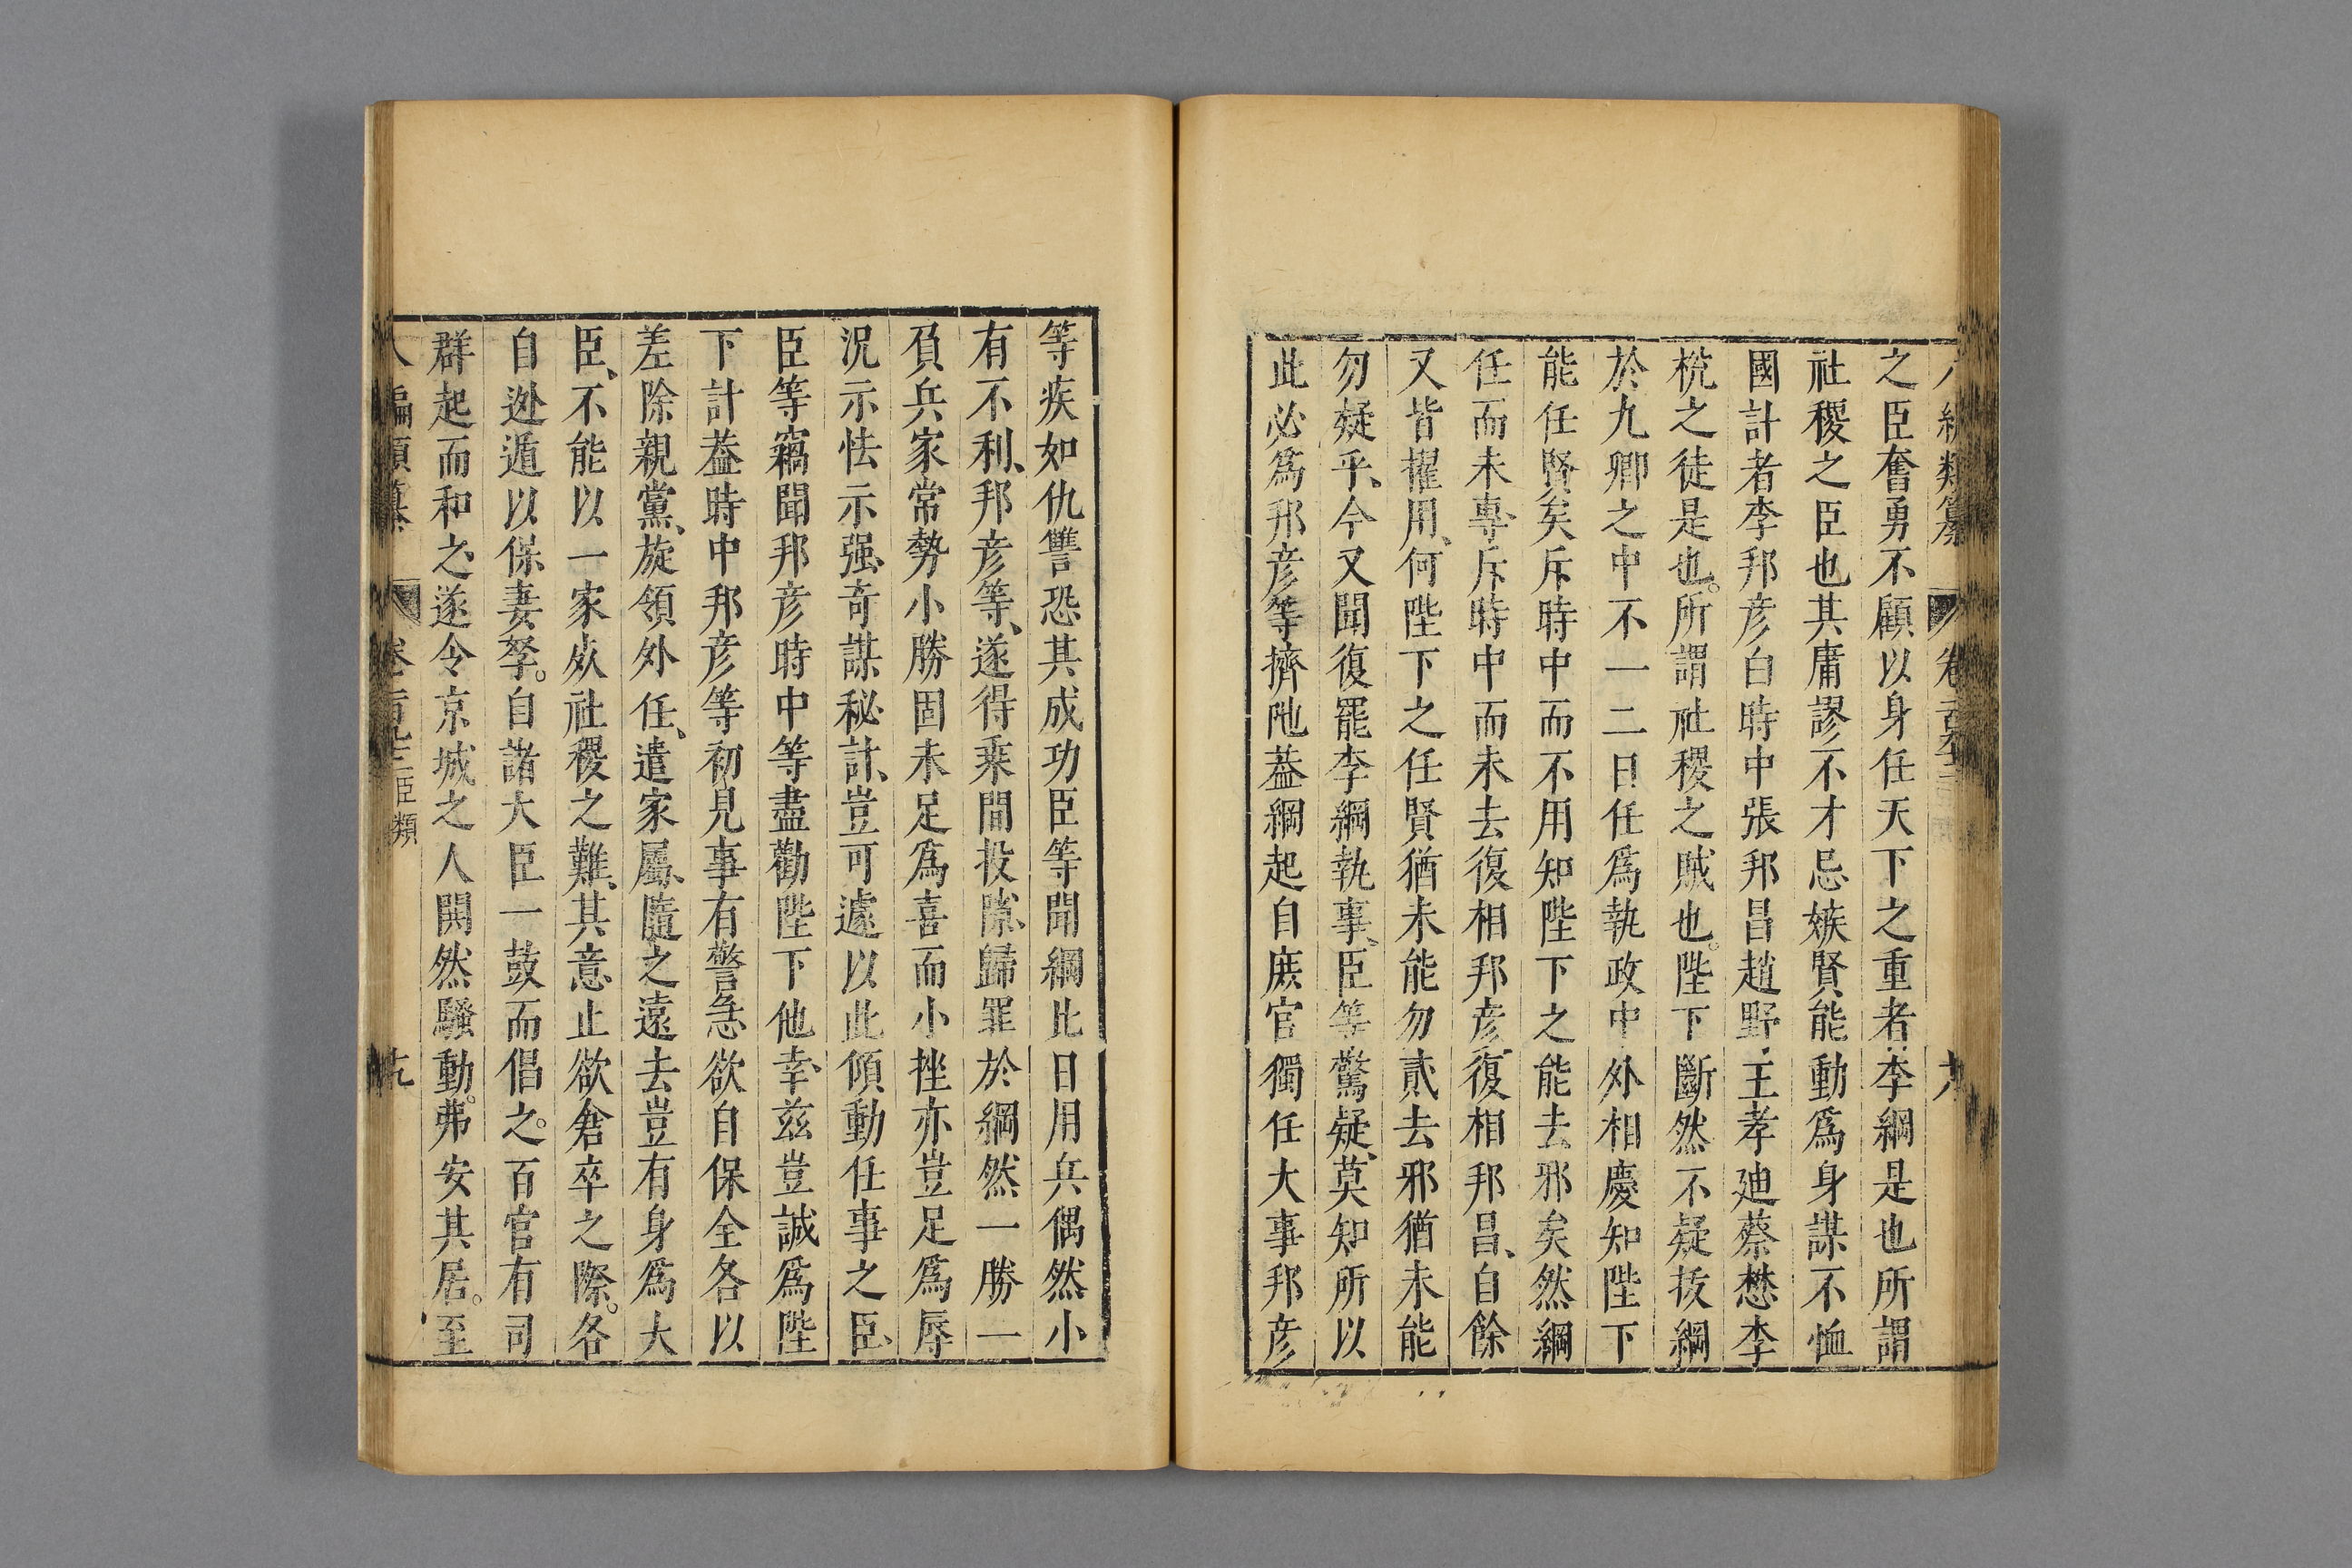 之臣奮勇不顧以身任天下之重者李綱是也所謂
社稷之臣也其庸謬不才忌嫉賢能動爲身謀不恤
國計者李邦彦白時中張邦昌趙野王孝廸蔡懋李
梲之徒是也。所謂社稷之賊也。陛下斷然不疑拔綱
於九卿之中不一二日任爲執政中外相慶知陛下
能任賢矣斥時中而不用知陛下之能去邪矣然綱
任而未專、斥時中而未去復相邦彦復相邦昌、自餘
又皆擢用、何陛下之任賢猶未能勿貳去邪猶未能
勿疑乎、今又聞復罷李綱執事、臣等驚疑、莫知所以
此必爲邦彦等擠阤葢綱起自庻官獨任大事邦彦
等疾如仇讐恐其成功臣等聞綱比日用兵偶然小
有不利、邦彦等、遂得乗間投隙、歸罪於綱然一勝一
負兵家常勢小勝固未足爲喜而小挫亦豈足爲辱
況示怯示强、奇謀秘計、豈可遽以此傾動任事之臣、
臣等竊聞邦彦時中等盡勸陛下他幸、兹豈誠爲陛
下計葢時中邦彦等初見事有警急欲自保全各以
差除親黨、旋領外任、遣家屬、隨之遠去豈有身爲大
臣、不能以一家㱕社稷之難、其意止欲倉卒之際。各
自迯遁以保妻孥。自諸大臣一鼓而倡之。百官有司
群起而和之、遂令京城之人閧然騷動。弗安其居。至
臣類